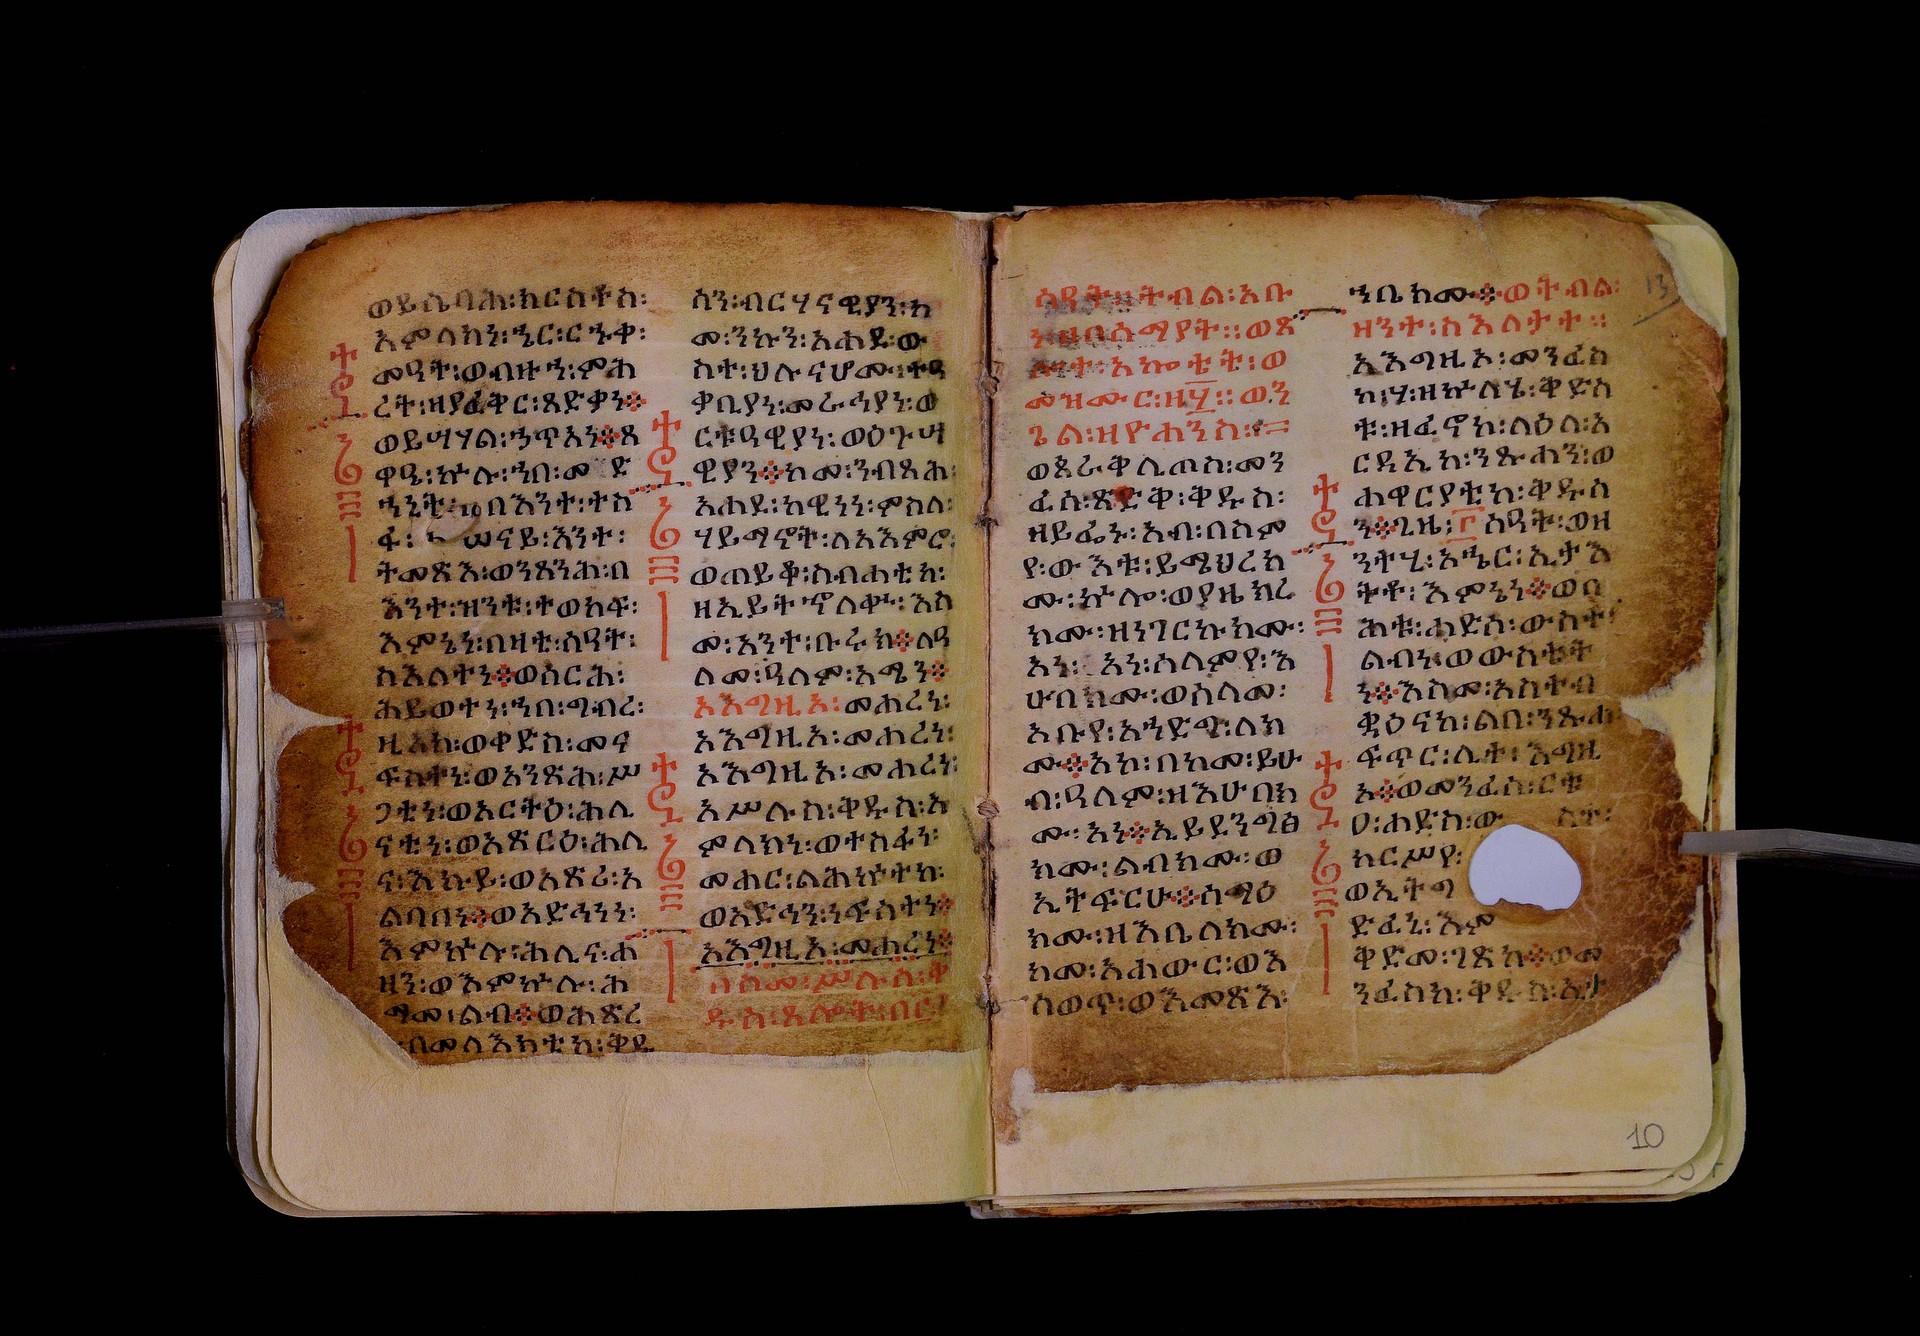 ወይሴባሕ፡ክርስቶስ፡
አምላክነ፡ኄር፡ርኁቀ፡
መዓት፡ወብዙኀ፡ምሕ
ረት፡ዘያፈቅር፡ጻድቃነ፨
ወይሣሃል፡ኃጥአነ፨ጸ
ዋዔ፡ኵሉ፡ኀበ፡መድ
ኀኒት፡በእንተ፡ተስ
ፋ፡ሠናይ፡እንተ፡
ትመጽእ፡ወንጸንሕ፡በ
እንተ፡ዝንቱ፡ተወከፍ፡
እምኔነ፡በዛቲ፡ሰዓት፡
ስእለትነ፨ወሰርሕ፡
ሕይወተነ፡ኀበ፡ግብረ፡
ዚአከ፡ወቀድስ፡መና
ፍስቲነ፡ወአንጽሕ፡ሥ
ጋቲነ፡ወአርትዕ፡ሕሊ
ናቲነ፡ወአጽርዕ፡ሕሊ
ና፡እኩይ፡ወአጽሪ፡አ
ልባበነ፨ወአድኅነነ፡
እምኵሉ፡ሕሊና፡ሐ
ዘን፡ወእምኵሉ፡ሕ
ማመ፡ልብ፨ወሕጽረ
በመላእክቲከ፡ቅዱ
ሳን፡ብርሃናዊያን፡ከ
መ፡ንኩን፡አሐደ፡ው
ስተ፡ህሉናሆሙ፡ተዓ
ቃቢያነ፡መራኅያነ፡ወ
ርቱዓዊያነ፡ወዕጉሣ
ዊያን፨ከመ፡ንብጻሕ፡
አሐደ፡ከዊነነ፡ምስለ፡
ሃይማኖት፡ለአእምሮ፡
ወጠይቆ፡ስብሐቲከ፡
ዘኢይትኖለቍ፡እስ
መ፡አንተ፡ቡሩክ፨ለዓ
ለመ፡ዓለም፡አሜን፨
እእግዚአ፡መሐረነ፡
እእግዚአ፡መሐረነ፡
እእግዚአ፡መሐረነ፡
እሥሉስ፡ቅዱስ፡አ
ምላክነ፡ወተስፋነ፡
መሐር፡ልሕኵተከ፡
ወአድኅን፡ነፍስተነ፨
እእግዚአ፡መሐረነ፨
በስመ፡ሥሉስ፡ቅ
ዱስ፡ጸሎት፡በ፫
ሰዓት፡ትብል፡አቡ
ነ፡ዘበሰማያት፡፡ወጸ
ሎተ፡አኰቴት፡ወ
መዝሙር፡ዘ፶፡፡ወን
ጌል፡ዘዮሐንስ፡
ወጰራቅሊጦስ፡መን
ፈስ፡ጽድቅ፡ቅዱስ፡
ዘይፌኑ፡አብ፡በስም
የ፡ውእቱ፡ይሜህረክ
ሙ፡ኵሎ፡ወያዜክረ
ክሙ፡ዘነገርኩክሙ፡
አነ፡አነ፡ሰላምየ፡እ
ሁበክሙ፡ወሰላመ፡
አቡየ፡አኀድግ፡ለክ
ሙ፨አኮ፡በከመ፡ይሁ
ብ፡ዓለም፡ዘእሁበክ
ሙ፡አነ፨ኢይደንግፅ
ክሙ፡ልብክሙ፡ወ
ኢትፍርሁ፨ሰማዕ
ክሙ፡ዘእቤለክሙ፡
ከመ፡አሐውር፡ወእ
ሰወጥ፡ወእመጽእ፡
ኀቤክሙ፨ወትብል፡
ዘንተ፡ስእለታተ፡፡
እእግዚአ፡መንፈስ
ከ፡ሃ፡ዘኵለሄ፡ቅዱስ
ቱ፡ዘፈኖከ፡ላዕለ፡አ
ርዳኢከ፡ንጹሐን፡ወ
ሐዋርያቲከ፡ቅዱሳ
ን፨ጊዜ፡፫ሰዓት፡ወዘ
ንተሂ፡አኄር፡ኢታእ
ትቶ፡እምኔነ፨ወበ
ሕቱ፡ሐድስ፡ውስተ
ልብነ፡ወውስቴት
ነ፨እስመ፡አስተብ
ቋዕናከ፡ልበ፡ንጹሐ
ፍጥር፡ሊተ፡እግዚ
አ፨ወመንፈስ፡ርቱ
ዐ፡ሐድስ፡ውስተ፡
ከርሥየ፡
ወኢትግ
ድፈኒ፡እም
ቅድመ፡ገጽከ፨ወመ
ንፈስከ፡ቅዱስ፡ኢታ
13
10